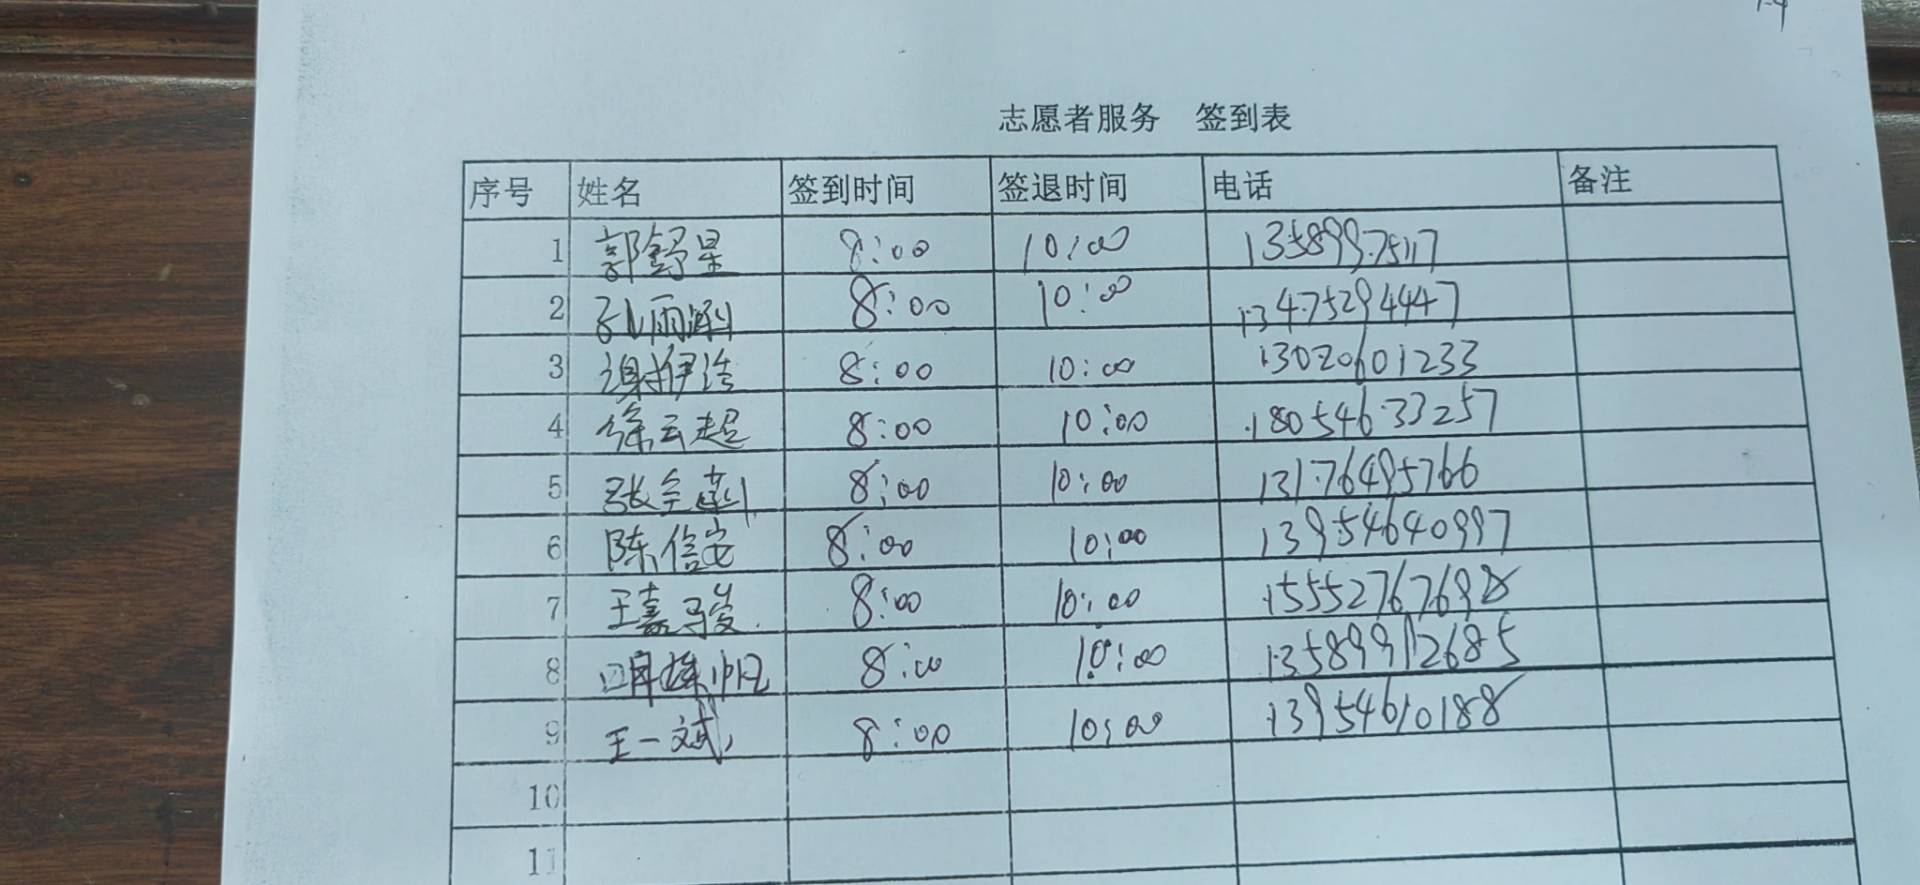 志愿者服务 签到表
序号 姓名 签到时间 签退时间 电话 备注
1 郭舒星 8:00 10:00 13589997517
2 孔雨涵 8:00 10:00 13475294447
3 谢伊浩 8:00 10:00 13020601233
4 徐云超 8:00 10:00 18054633257
5 张 8:00 10:00 13176495766
6 陈信安 8:00 10:00 13954640997
7 王嘉骏 8:00 10:00 15552767698
8 8:00 10:00 13589912685
9 王一斌 8:00 10:00 13954610188
10
11